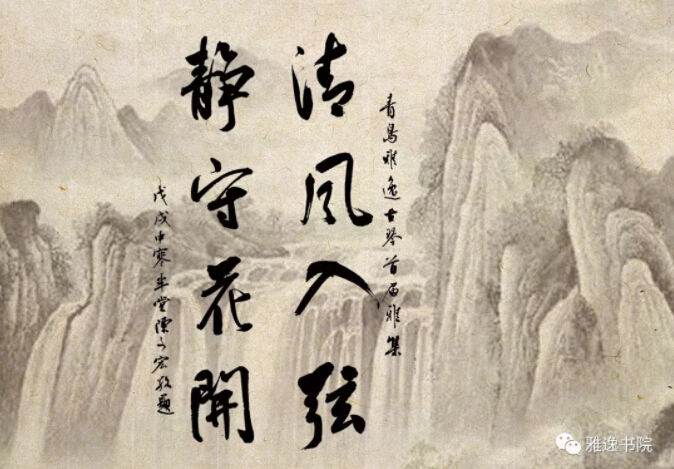 青島雅逸古琴首届雅集
清风入弦
静守花開
戊戌中寒半堂陳宏敬題
雅逸书院